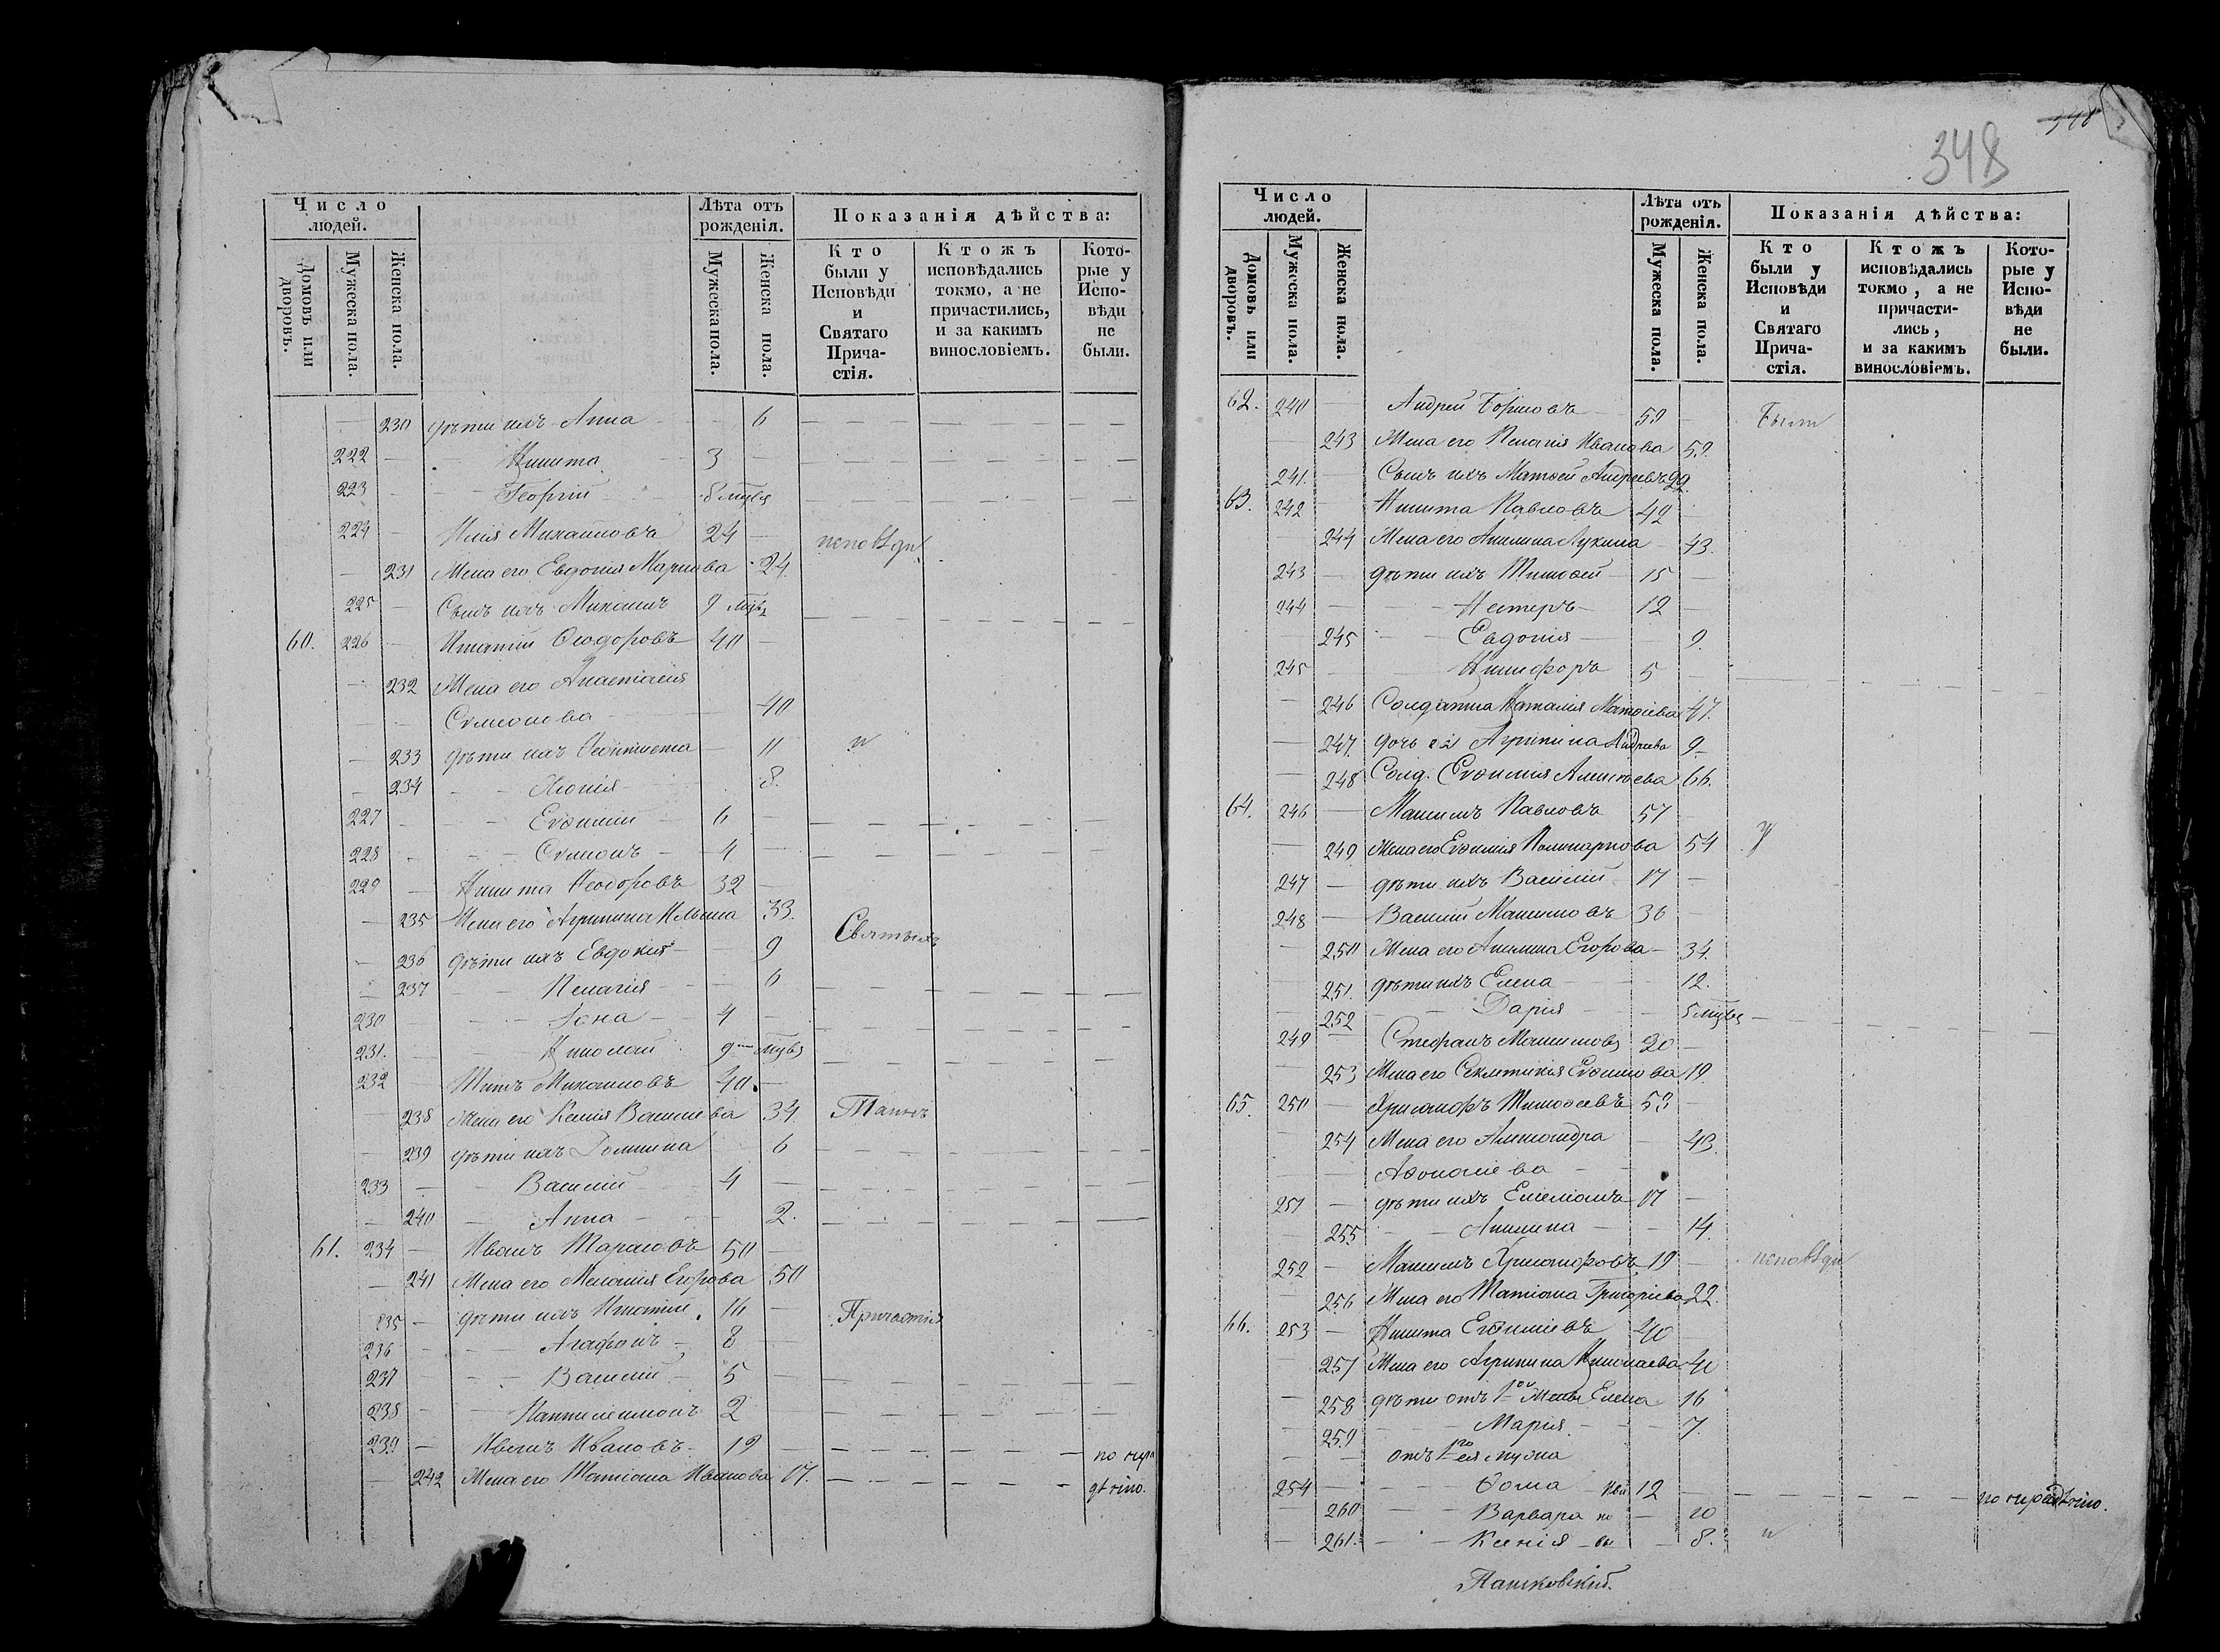 Число людей.
Лѣта отъ рожденія.
Показанія дѣйства:
Домовъ или дворовъ.
Мужеска пола.
Женска пола.
Мужеска пола.
Женска пола.
Кто были у Исповѣди и Святаго Прича-стія.
Ктожъ исповѣдались токмо, а не причастились, и за какимъ винословіемъ.
Кото-рые у Испо-вѣди не были.
230 дѣти ихъ Анна 6
222 Никита 3
223 Георгій 8 мцвъ
224 Илія Михаиловъ 24 исповѣди
231 Жена его Евдокія Маркова 24
225 Сынъ ихъ Михаилъ 9 мцвъ
60. 226 Игнатій Ѳеодоровъ 40
232 Жена его Анастасія
Семионова 40
233 дѣти ихъ Ѳеоктиста 11 и
234 Хіонія 8.
227 Евѳимій 6
228 Семіонъ 4
229 Никита Ѳеодоровъ 32
235 Жена его Агрипина Ильина 33. Святыхъ
236 дѣти ихъ Евдокія 9
237 Пелагія 6
230 Іона 4
231. Николай 9 мцвъ
232 Титъ Михаиловъ 40.
238 Жена его Ксенія Василиева 34. Таинъ
239 дѣти ихъ Домникiа 6
233 Василій 4
240 Анна 2.
61. 234 Иванъ Тарасовъ 50
241 Жена его Меланія Егорова 50
235 дѣти ихъ Игнатій 16 Причастія
236 Агафонъ 8
237 Василій 5
238 Пантилеимонъ 2
239 Иванъ Ивановъ 19 по нера
242 Жена его Татіана Иванова 17. дѣнію.
348
Число людей.
Лѣта отъ рожденія.
Показанія дѣйства:
Домовъ или дворовъ.
Мужеска пола.
Женска пола.
Мужеска пола.
Женска пола.
Кто были у Исповѣди и Святаго Прича-стія.
Ктожъ исповѣдались токмо, а не причасти-лись, и за какимъ винословіемъ.
Кото-рые у Испо-вѣди не были.
62. 240 Андрей Борисовъ 59 Были
243 Жена его Пелагія Иванова 59.
241. Сынъ ихъ Матѳей Андреевъ 22.
63. 242 Никита Павловъ 42
244 Жена его Акилина Лукина 43.
243 дѣти ихъ Тимоѳей 15
244 Нестеръ 12
245 Евдокія 9.
245 Никифоръ 5
246 Солдатка Наталія Матѳіева 47.
247. дочь ея Агрипина Андреева 9
248 Солд. Евѳимія Алексѣева 66.
64. 246 Максимъ Павловъ 57
249 Жена его Евѳимія Поликарпова 54 у
247 дѣти ихъ Василій 17
248 Василій Максимовъ 36
250 Жена его Акилина Егорова 34.
251. дѣти ихъ Елена 12.
252 Дарія 5 мцвъ
249 Стефанъ Максимовъ 20
253 Жена его Секлетикія Евѳимова 19
65. 250 Хрисанфъ Тимоѳеевъ 53
254 Жена его Александра 43.
Аѳонасіева
251 дѣти ихъ Емеліанъ 17
255 Акилина 14.
252 Максимъ Хрисанфовъ 19 исповѣди
256 Жена его Татіана Григоріева 22.
66. 253 Никита Евѳиміевъ 40
257 Жена его Агрипина Николаева 40
258 дѣти отъ 1ой Жены Елена 16
259 Марія 7.
отъ 1го ея мужа
254 Ѳома 12 по нерадѣнію.
260 Варвара 10
261. Ксенія 8. и
Пашковскій.